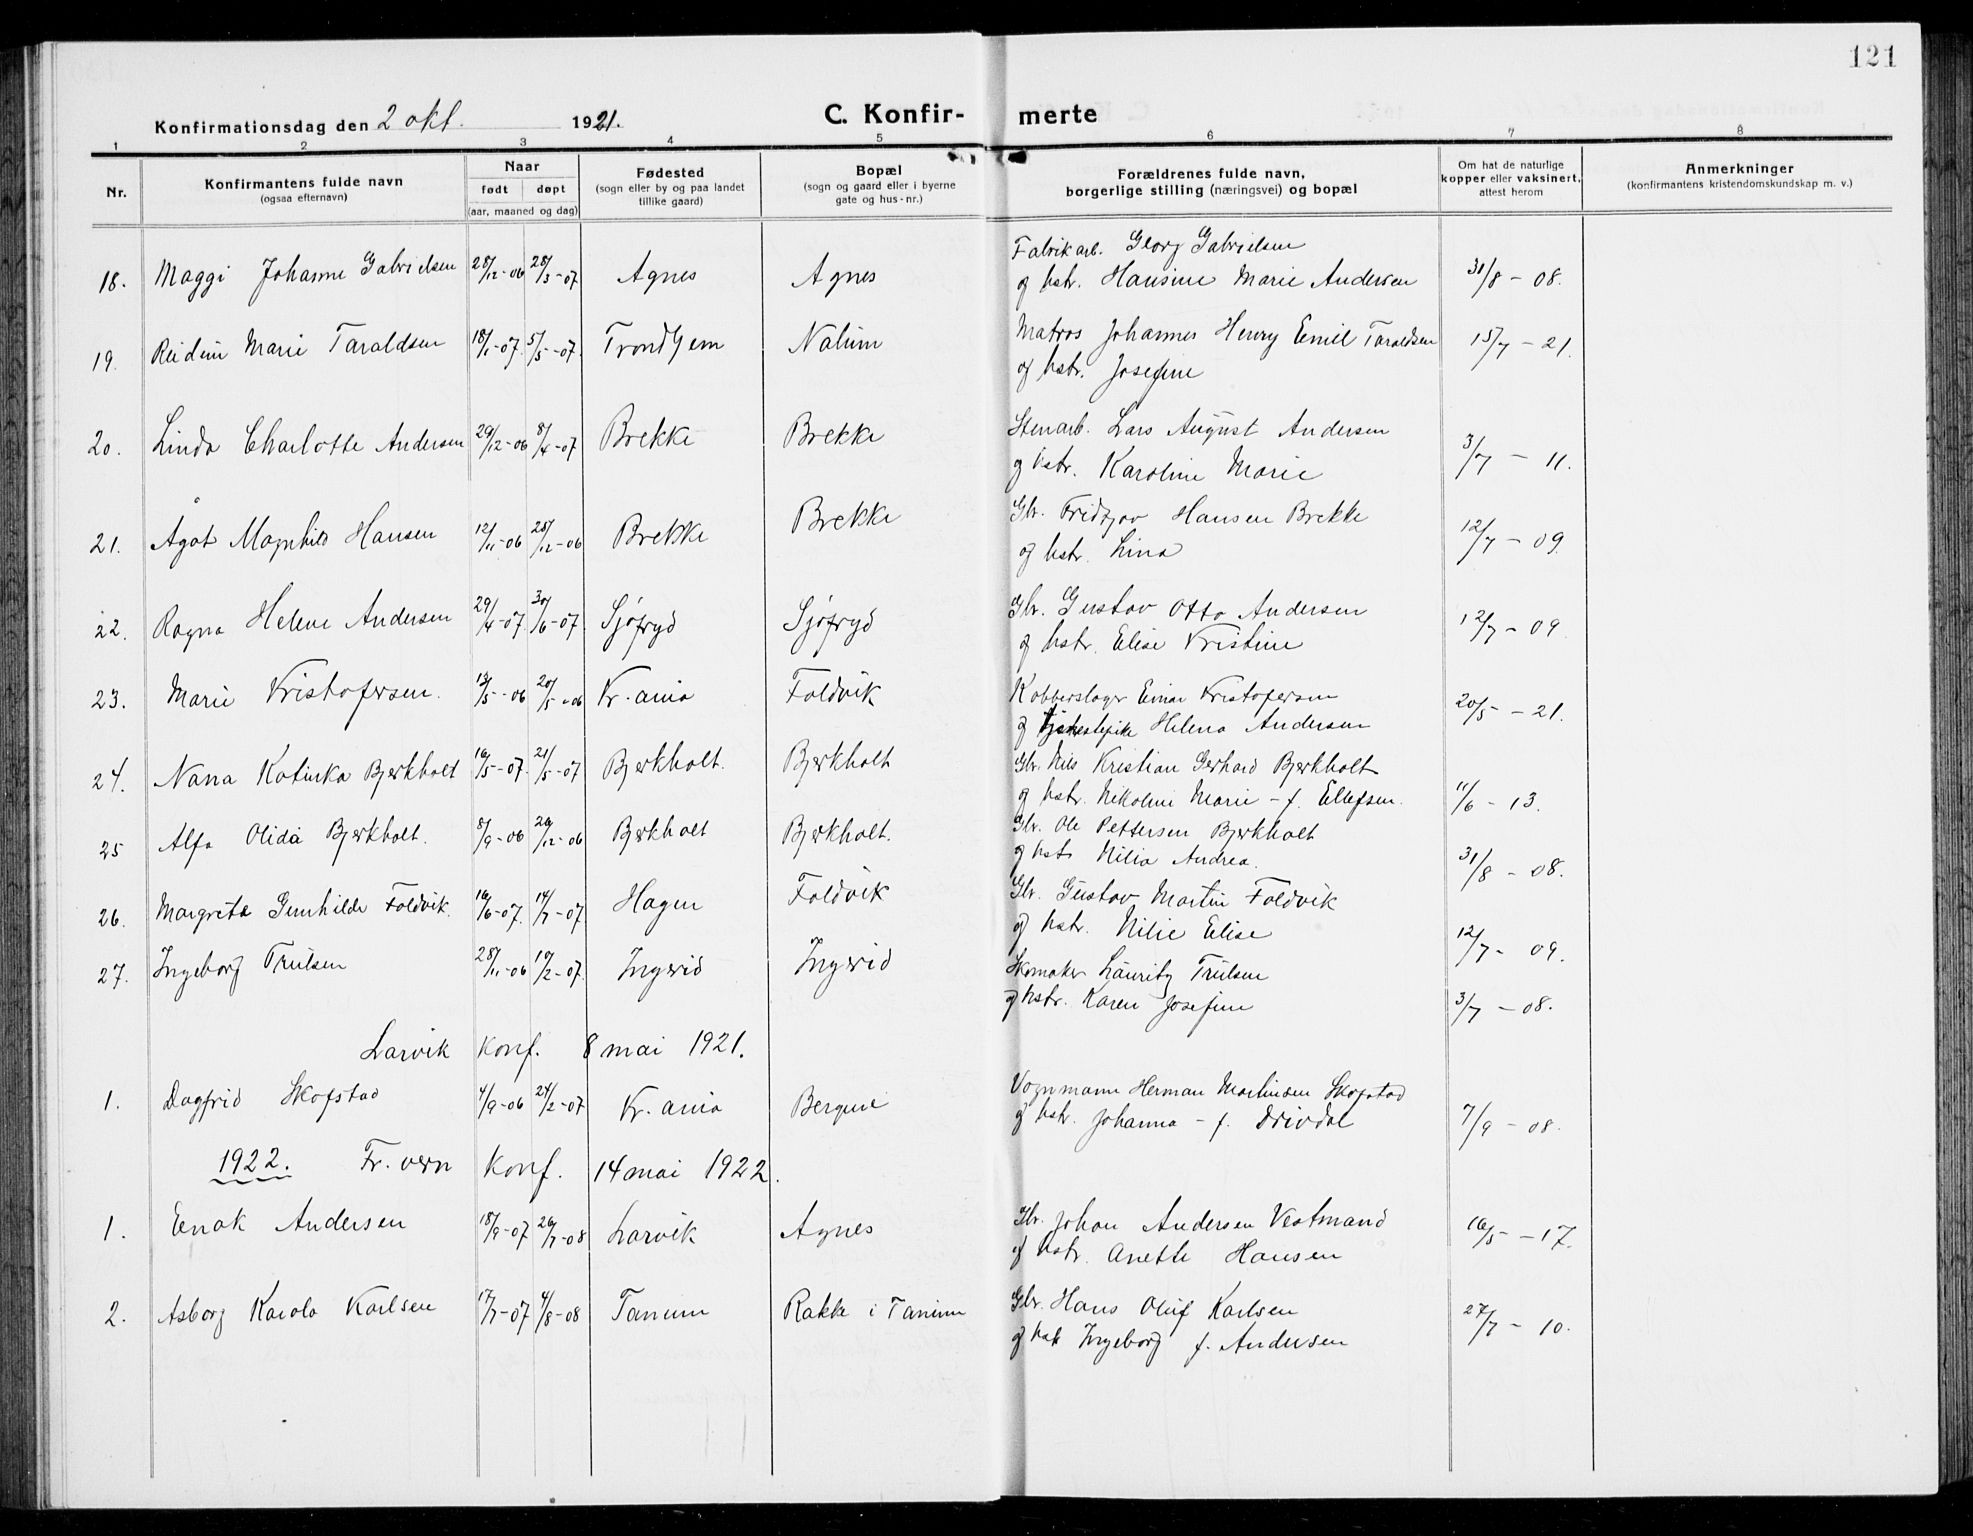 121
Konfirmationsdag den 2 okt. 1921. C. Konfirmerte
1 2 3 4 5 6 7 8
Nr. Konfirmantens fulde navn (ogsaa efternavn) Naar født døpt (aar, maaned og dag) Fødested (sogn eller by og paa landet tillike gaard) Bopæl (sogn og gaard eller i byerne gate og hus-nr.) Forældrenes fulde navn, borgerlige stilling (næringsvei) og bopæl Om hat de naturlige kopper eller vaksinert, attest herom Anmerkninger (konfirmantens kristendomskundskap m. v.)
18. Maggi Johanne Gabrielsen 28/12-06 28/3-07 Agnes Agnes Fabrikarb. Georg Gabrielsen
og hstr. Hansine Marie Andersen 31/8-08.
19. Reidun Marie Taraldsen 18/1-07. 5/5-07. Trondhjem Nalum Matros Johannes Henry Emil Taraldsen 15/7-21.
og hstr. Josefine
20. Linda Charlotte Andersen 29/12-06 8/4-07 Brekke Brekke Stenarb. Lars August Andersen
og hstr. Karoline Marie 3/7-11.
21. Ågot Magnhild Hansen 12/11-06 28/12-06 Brekke Brekke Gbr. Fridtjov Hansen Brekke
og hstr. Lina 12/7-09.
22. Ragna Helene Andersen 29/4-07. 30/6-07. Sjøfryd Sjøfryd Gbr. Gustav Otto Andersen
og hstr. Elise Kristine 12/7-09
23. Marie Kristofersen. 13/5-06 20/5-06 Kr.ania Foldvik Kobberslager Einar Kristofersen
og tjenestepike Helena Andersen 20/5-21.
24. Nana Katinka Bjerkholt 16/5-07. 21/5-07 Bjerkholt. Bjerkholt Gbr. Nils Kristian Gerhard Bjerkholt
og hstr. Nikoline Marie - f. Ellefsen. 11/6-13.
25 Alfa Olida Bjerkholt. 8/9-06 26/12-06 Bjerkholt Bjerkholt. Gbr. Ole Pettersen Bjerkholt
og hstr Nilia Andrea. 31/8-08.
26. Margrete Gunhilde Foldvik. 16/6-07. 14/7-07 Hagen Foldvik Gbr. Gustav Martin Foldvik
og hstr. Nilie Elise 12/7-09.
27. Ingeborg Trulsen 28/11-06 10/2-07. Ingerid Ingerid Skomaker Lauritz Trulsen
og hstr. Karen Josefine 3/7-08.
Larvik Konf. 8 mai 1921.
1. Dagfrid Skogstad 4/9-06 24/2-07 Kr.ania Bergene Vognmann Herman Martinsen Skogstad
og hstr. Johanna - f. Drivdal 7/9-08.
1922. Fr.vern Konf. 14 mai 1922.
1. Enok Andersen 18/9-07 26/7-08 Larvik Agnes Gbr. Johan Andersen Vestmand
og hstr. Anette Hansen 16/5-17.
2. Asborg Karola Karlsen 17/7-07 4/8-08 Tanum Rakke i Tanum Gbr. Hans Oluf Karlsen
og hstr Ingeborg f. Andersen 27/7-10.